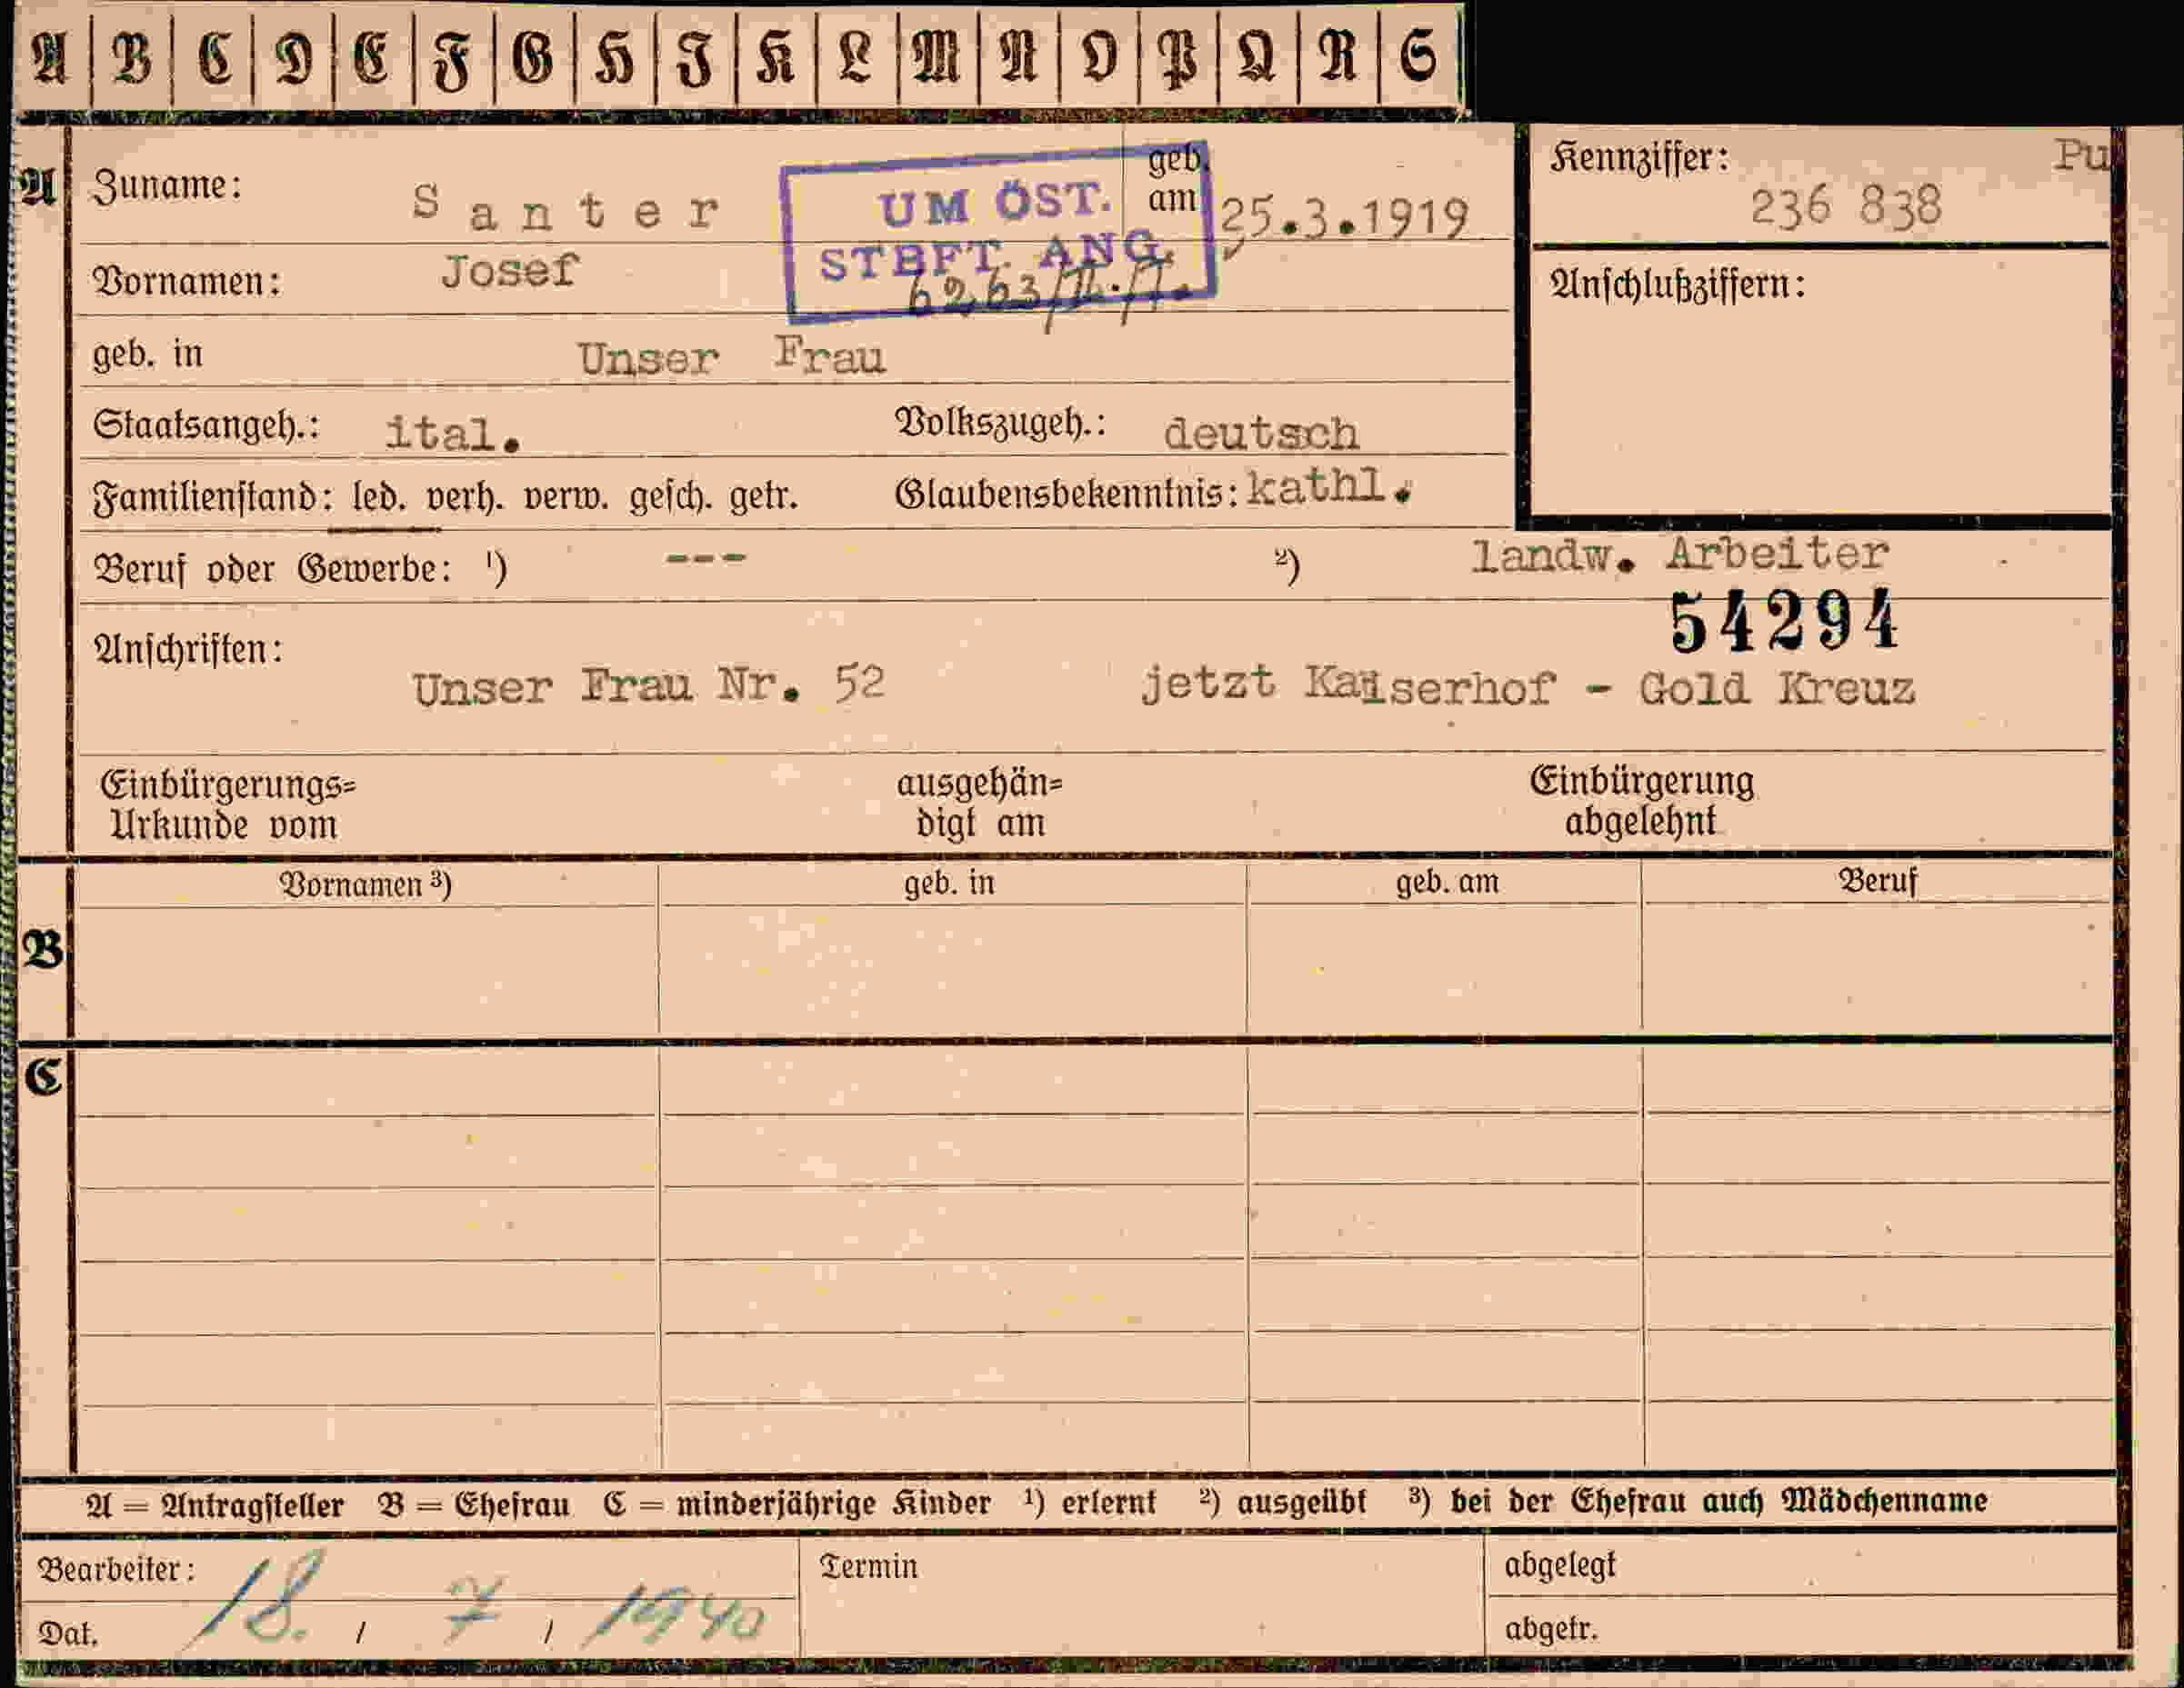 A B C D E F G H I K L M N O P Q R S
A
Zuname: Santer
UM ÖST.
STBFT. ANG.
geb. am 25.3.1919
Kennziffer: Pu
236 838
Vornamen: Josef
Anschlußziffern:
geb. in Unser Frau
Staatsangeh.: ital. Volkszugeh.: deutsch
Familienstand: led. verh. verw. gesch. getr. Glaubensbekenntnis: kathl.
Beruf oder Gewerbe: ¹) --- ²) landw. Arbeiter
54294
Anschriften:
Unser Frau Nr. 52 jetzt Kaiserhof - Gold Kreuz
Einbürgerungs= ausgehän= Einbürgerung
Urkunde vom digt am abgelehnt
Vornamen ³) geb. in geb. am Beruf
B
C
A = Antragsteller B = Ehefrau C = minderjährige Kinder ¹) erlernt ²) ausgeübt ³) bei der Ehefrau auch Mädchenname
Bearbeiter: Termin abgelegt
Dat. 18. / 7 / 1940 abgetr.